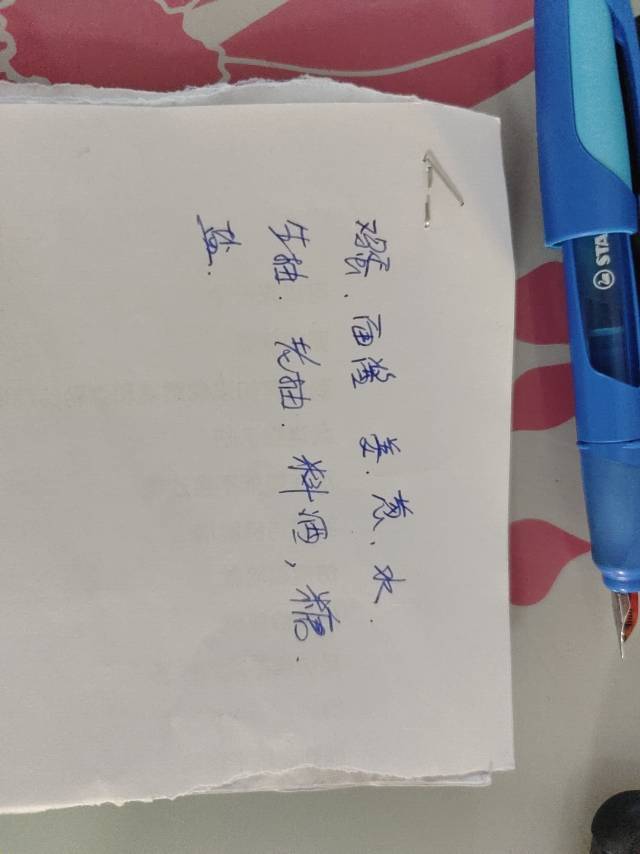 鸡蛋、面灌 姜、葱、水.
生抽. 老抽. 料酒, 糖.
盐.
STA